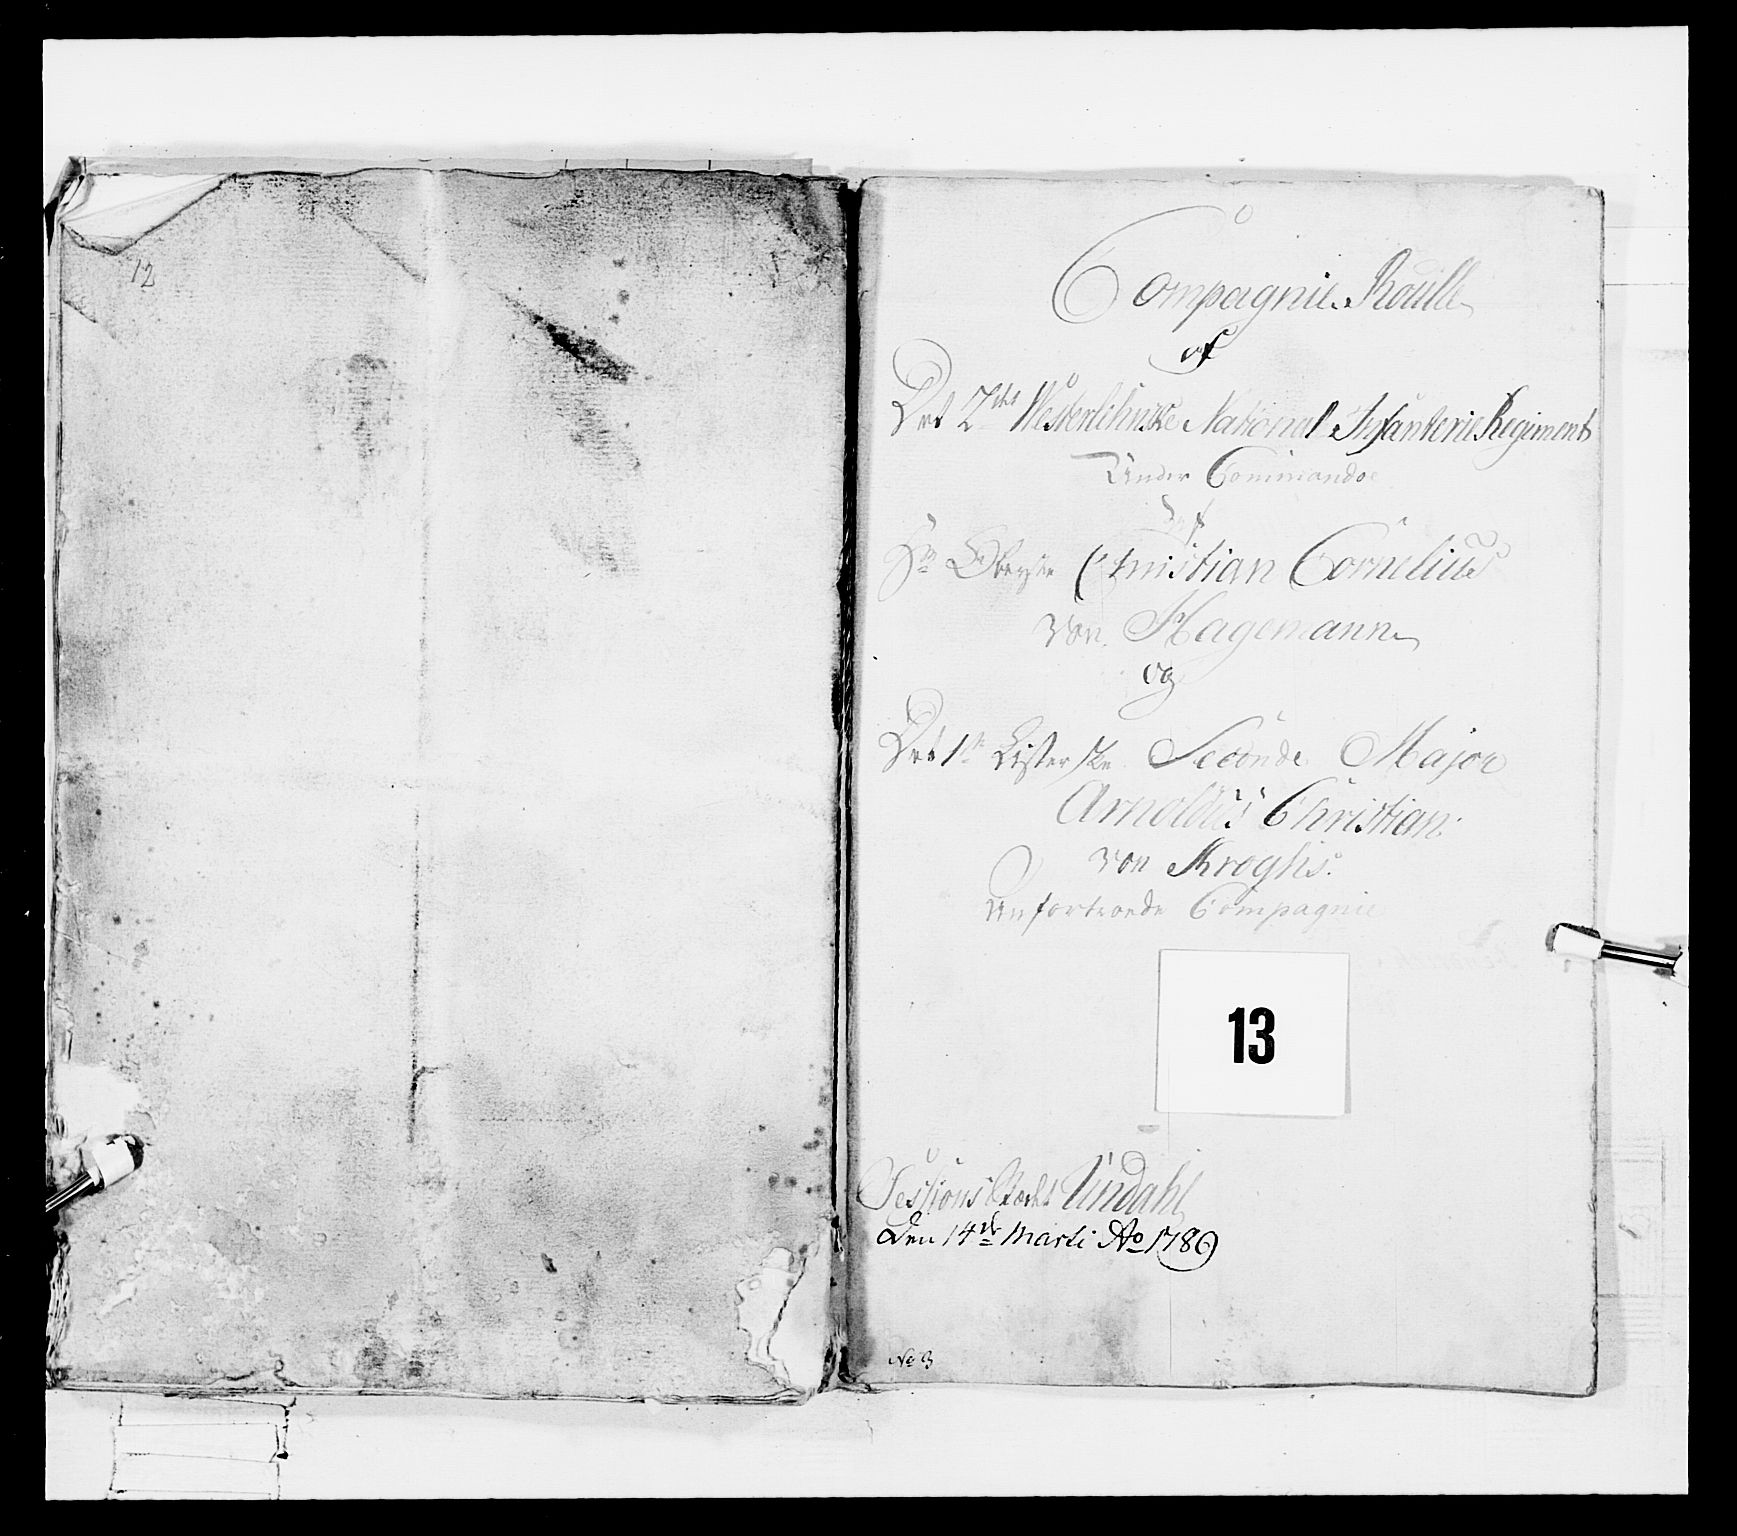 12
Compagnie Roulle
af
Det 2det Westerlehnske National Infanterie Regiment
Under Commando
af
Hr Oberste Christian Cornelius
von Hagemann
og
Det 1te Listerske Seconde Major
Arnoldus Christian
von Kroghs
Anfortroede Compagnie
13
Sessions Stædet Undahl
Den 14de Marti Ao 1789
No 3